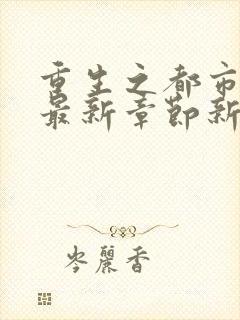 重生之都市
最新章节新
岑丽香